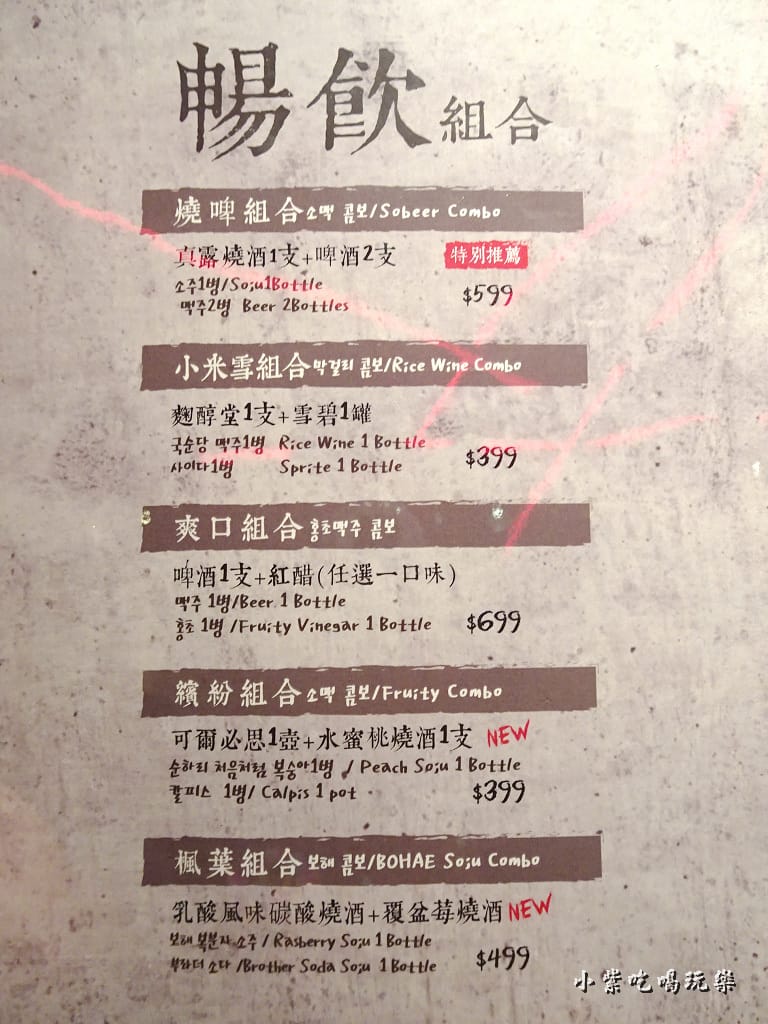 暢飲組合
燒啤組合소맥 콤보/Sobeer Combo
真露燒酒1支+啤酒2支 特別推薦
소주1병/Soju1Bottle
$599
맥주2병 Beer 2Bottles
小米雪組合막걸리 콤보/Rice Wine Combo
麴醇堂1支+雪碧1罐
국순당 맥주1병 Rice Wine 1 Bottle
$399
사이다1병 Sprite 1 Bottle
爽口組合홍초맥주 콤보
啤酒1支+紅醋(任選一口味)
맥주 1병/Beer 1 Bottle
홍초 1병 /Fruity Vinegar 1 Bottle $699
繽紛組合소맥 콤보/Fruity Combo
可爾必思1壺+水蜜桃燒酒1支 NEW
순하리 처음처럼 복숭아1병 / Peach Soju 1 Bottle
칼피스 1병/ Calpis 1 pot $399
楓葉組合보해 콤보/BOHAE Soju Combo
乳酸風味碳酸燒酒+覆盆莓燒酒 NEW
보해 복분자 소주 / Rasberry Soju 1 Bottle
부라더 소다 /Brother Soda Soju 1 Bottle $499
小紫吃喝玩樂